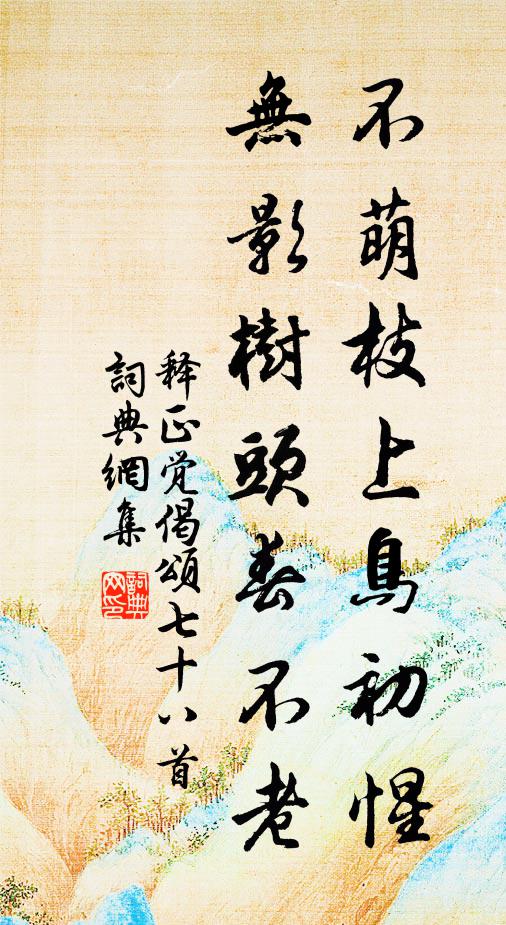 不萌枝上鳥初惺
無影樹頭春不老
释正觉偈頌七十八首
詞典網集
詞典
网印